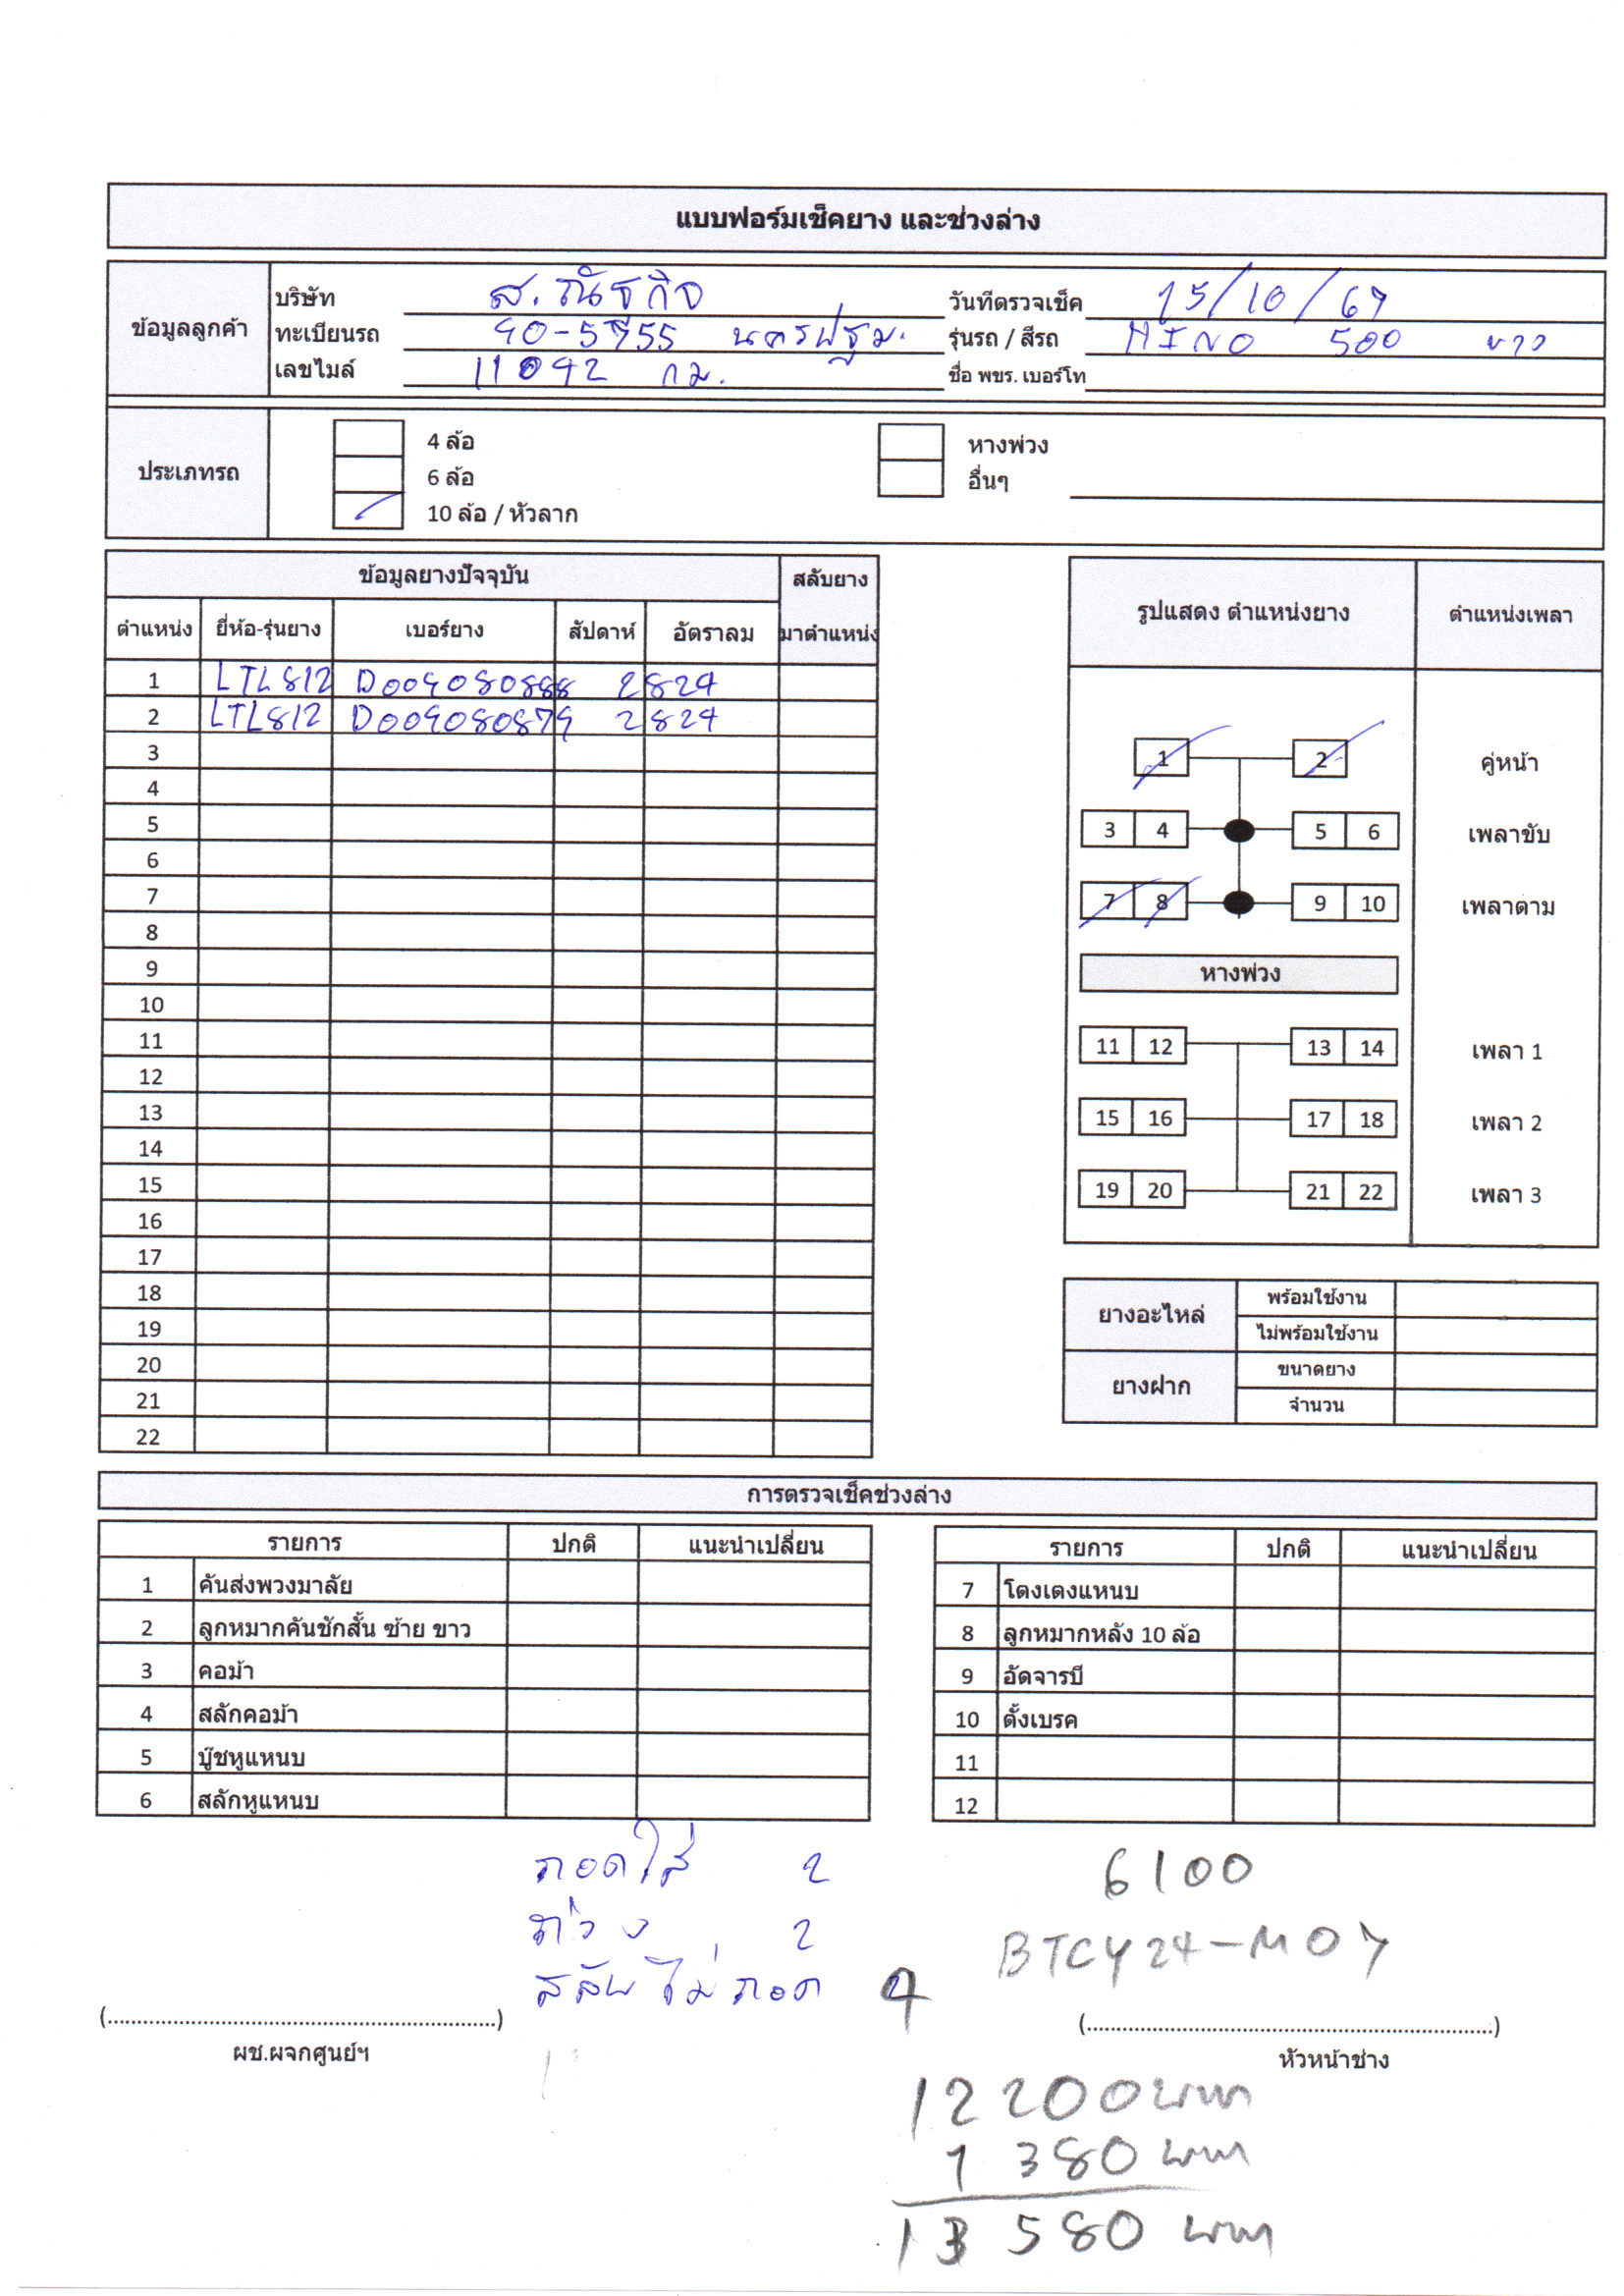 แบบฟอร์มเช็คยาง และช่วงล่าง
ข้อมูลลูกค้า
บริษัท ส.ณัฐกิจ วันที่ตรวจเช็ค 15/10/67
ทะเบียนรถ 90-5955 นครปฐม. รุ่นรถ / สีรถ HINO 500 ขาว
เลขไมล์ 11092 กม. ชื่อ พขร. เบอร์โท
ประเภทรถ
4 ล้อ หางพ่วง
6 ล้อ อื่นๆ
10 ล้อ / หัวลาก
ข้อมูลยางปัจจุบัน สลับยาง
ตำแหน่ง ยี่ห้อ-รุ่นยาง เบอร์ยาง สัปดาห์ อัตราลม มาตำแหน่ง
1 LTL812 D009080888 2824
2 LTL812 D009080879 2824
3
4
5
6
7
8
9
10
11
12
13
14
15
16
17
18
19
20
21
22
รูปแสดง ตำแหน่งยาง ตำแหน่งเพลา
1 2 คู่หน้า
3 4 5 6 เพลาขับ
7 8 9 10 เพลาตาม
หางพ่วง
11 12 13 14 เพลา 1
15 16 17 18 เพลา 2
19 20 21 22 เพลา 3
ยางอะไหล่ พร้อมใช้งาน
ไม่พร้อมใช้งาน
ยางฝาก ขนาดยาง
จำนวน
การตรวจเช็คช่วงล่าง
รายการ ปกติ แนะนำเปลี่ยน
1 คันส่งพวงมาลัย
2 ลูกหมากคันชักสั้น ซ้าย ขาว
3 คอม้า
4 สลักคอม้า
5 บู๊ชหูแหนบ
6 สลักหูแหนบ
รายการ ปกติ แนะนำเปลี่ยน
7 โตงเตงแหนบ
8 ลูกหมากหลัง 10 ล้อ
9 อัดจารบี
10 ตั้งเบรค
11
12
ถอดใส่ 2 6100
ถ่วง 2 BTCY24-M07
สลับไม่ถอด 4
(..................................................) (..................................................)
ผช.ผจกศูนย์ฯ หัวหน้าช่าง
12200 บาท
1 380 บาท
13 580 บาท